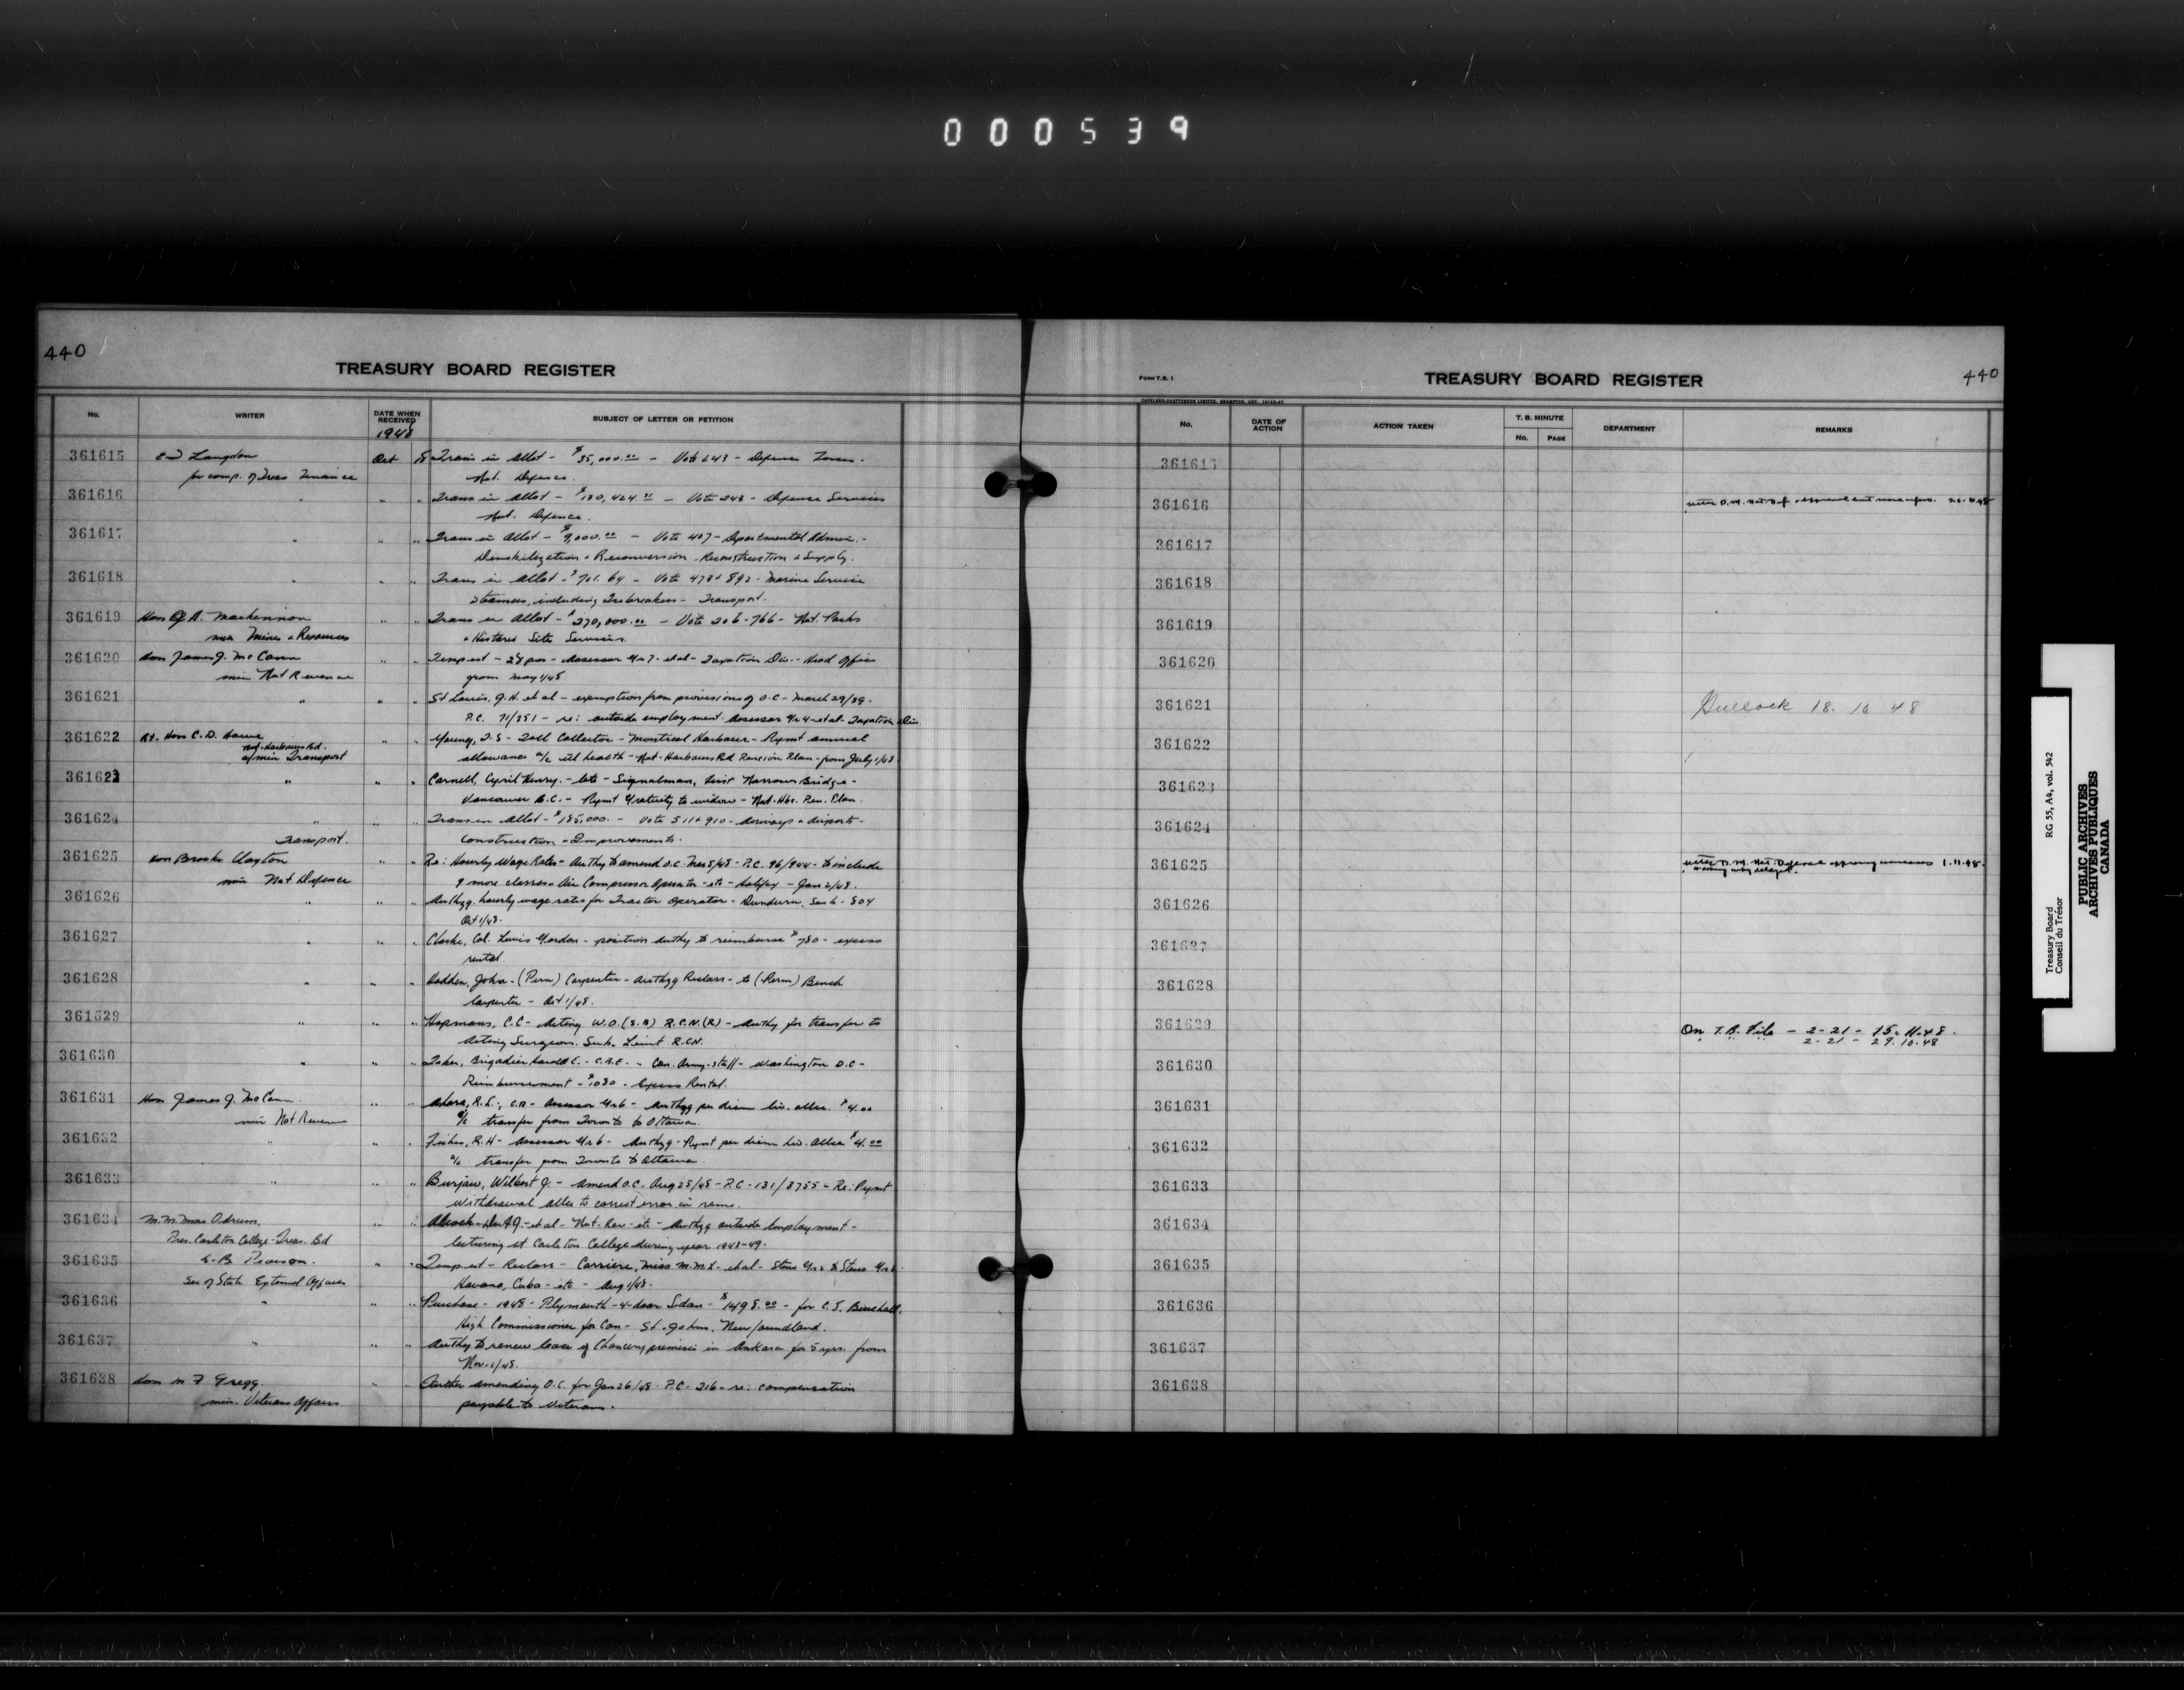 000539
440
TREASURY BOARD REGISTER
No. WRITER DATE WHEN RECEIVED SUBJECT OF LETTER OR PETITION
1948
361615 Langdon Oct 18 Trans in Allot - $35,000.00 - Vote 248 - Defence
for comp. of Treas Finance Nat. Defence.
361616 " " " Trans in Allot - $130,424.00 - Vote 248 - Defence Services
Nat. Defence.
361617 " " " Trans in Allot - $9,000.00 - Vote 407 - Departmental Admin. -
Demobilization & Reconversion - Reconstruction & Supply.
361618 " " " Trans in Allot - $701.64 - Vote 478 & 892 - Marine Service
Steamers, including Icebreakers - Transport.
361619 Hon J.A. MacKinnon " " Trans in Allot - $270,000.00 - Vote 206-766 - Nat. Parks
min Mines & Resources & Historic Site Services.
361620 Hon James J. McCann " " Temp est - 28 pos - Assessor Gr 7 - et al - Taxation Div. - Head Office
min Nat Revenue from May 1/48
361621 " " " St Louis, J.H. et al - exemption from provisions of O.C - March 29/39 -
P.C. 71/851 - re: outside employment. Assessor Gr 4 - et al - Taxation Div
361622 Rt. Hon C.D. Howe " " Young, T.S - Toll Collector - Montreal Harbour - Paymt annual
Nat. Harbours Bd.
a/min Transport allowance a/c ill health - Nat. Harbours Bd Pension Plan - from July 1/48
361623 " " " Carnell, Cyril Henry. - late - Signalman, First Narrows Bridge -
Vancouver B.C. - Paymt Gratuity to widow - Nat. Hbr. Pen. Plan.
361624 " " " Trans in Allot - $185,000. - Vote 511 & 910 - Airways & Airports -
Transport. Construction & Improvements.
361625 Hon Brooke Claxton " " Re: Hourly Wage Rates - Authy to amend O.C. Mar 5/48 - P.C. 96/944 - to include
min Nat Defence 9 more classes - Air Compressor Operator - etc - Halifax - Jan 2/48.
361626 " " " Authzg. hourly wage rates for Tractor Operator - Dundurn, Sask - 804
Oct 1/48.
361627 " " " Clarke, Col. Lewis Gordon - position Authy to reimburse $780 - excess
rental.
361628 " " " Hadden, John - (Perm) Carpenter - Authzg Reclass - to (Perm) Bench
Carpenter - Oct 1/48.
361629 " " " Hopmans, C.C - Acting W.O. (S.B) R.C.N.(R) - Authy for transfer to
Acting Surgeon. Sub. Lieut R.C.N.
361630 " " " Taber, Brigadier Harold E. - C.B.E. - Can. Army Staff - Washington D.C -
Reimbursement - $1080 - Excess Rental.
361631 Hon James J. McCann " " R.L., C.A - Assessor Gr 6 - Authzg per diem liv. allce. $4.00
min Nat Revenue a/c transfer from Toronto to Ottawa.
361632 " " " Fisher, R.H - Assessor Gr 6 - Authzg - Paymt per diem liv. Allce $4.00
a/c transfer from Toronto to Ottawa.
361633 " " " Burjaw, Wilbert J. - Amend O.C. Aug 25/48 - P.C - 131/3755 - Re: Paymt
Withdrawal Allce to correct error in name.
361634 M.M. Mac Odrum " " et al - Nat. Rev - etc - Authzg outside Employment -
Pres. Carleton College - Treas. Bd lecturing at Carleton College during year 1948-49.
361635 L.B. Pearson " " Temp est - Reclass - Carriere, Miss M.M.L - et al - Steno Gr 2 to Steno Gr 3
Sec of State External Affairs Havana, Cuba - etc - Aug 1/48.
361636 " " " Purchase - 1948 - Plymouth - 4-door Sedan - $1498.00 - for C.J. Burchell,
High Commissioner for Can - St. Johns, Newfoundland.
361637 " " " Authy to renew lease of Chancery premises in Ankara for 5 yrs. from
Nov. 1/48.
361638 Hon M F Gregg " " Further amending O.C. for Jan 26/48 - P.C. 206 - re: compensation
min. Veterans Affairs payable to Veterans.
FORM T.B. 1
TREASURY BOARD REGISTER
440
No. DATE OF ACTION ACTION TAKEN T. B. MINUTE DEPARTMENT REMARKS
No. PAGE
361615
361616
361617
361618
361619
361620
361621 Bullock 18. 10 48
361622
361623
361624
361625 1.11.48.
361626
361627
361628
361629 On T.B. File - 2-21 - 15.11.48.
2-21 - 29.10.48
361630
361631
361632
361633
361634
361635
361636
361637
361638
Treasury Board RG 55, A4, vol. 542
Conseil du Trésor
PUBLIC ARCHIVES
ARCHIVES PUBLIQUES
CANADA